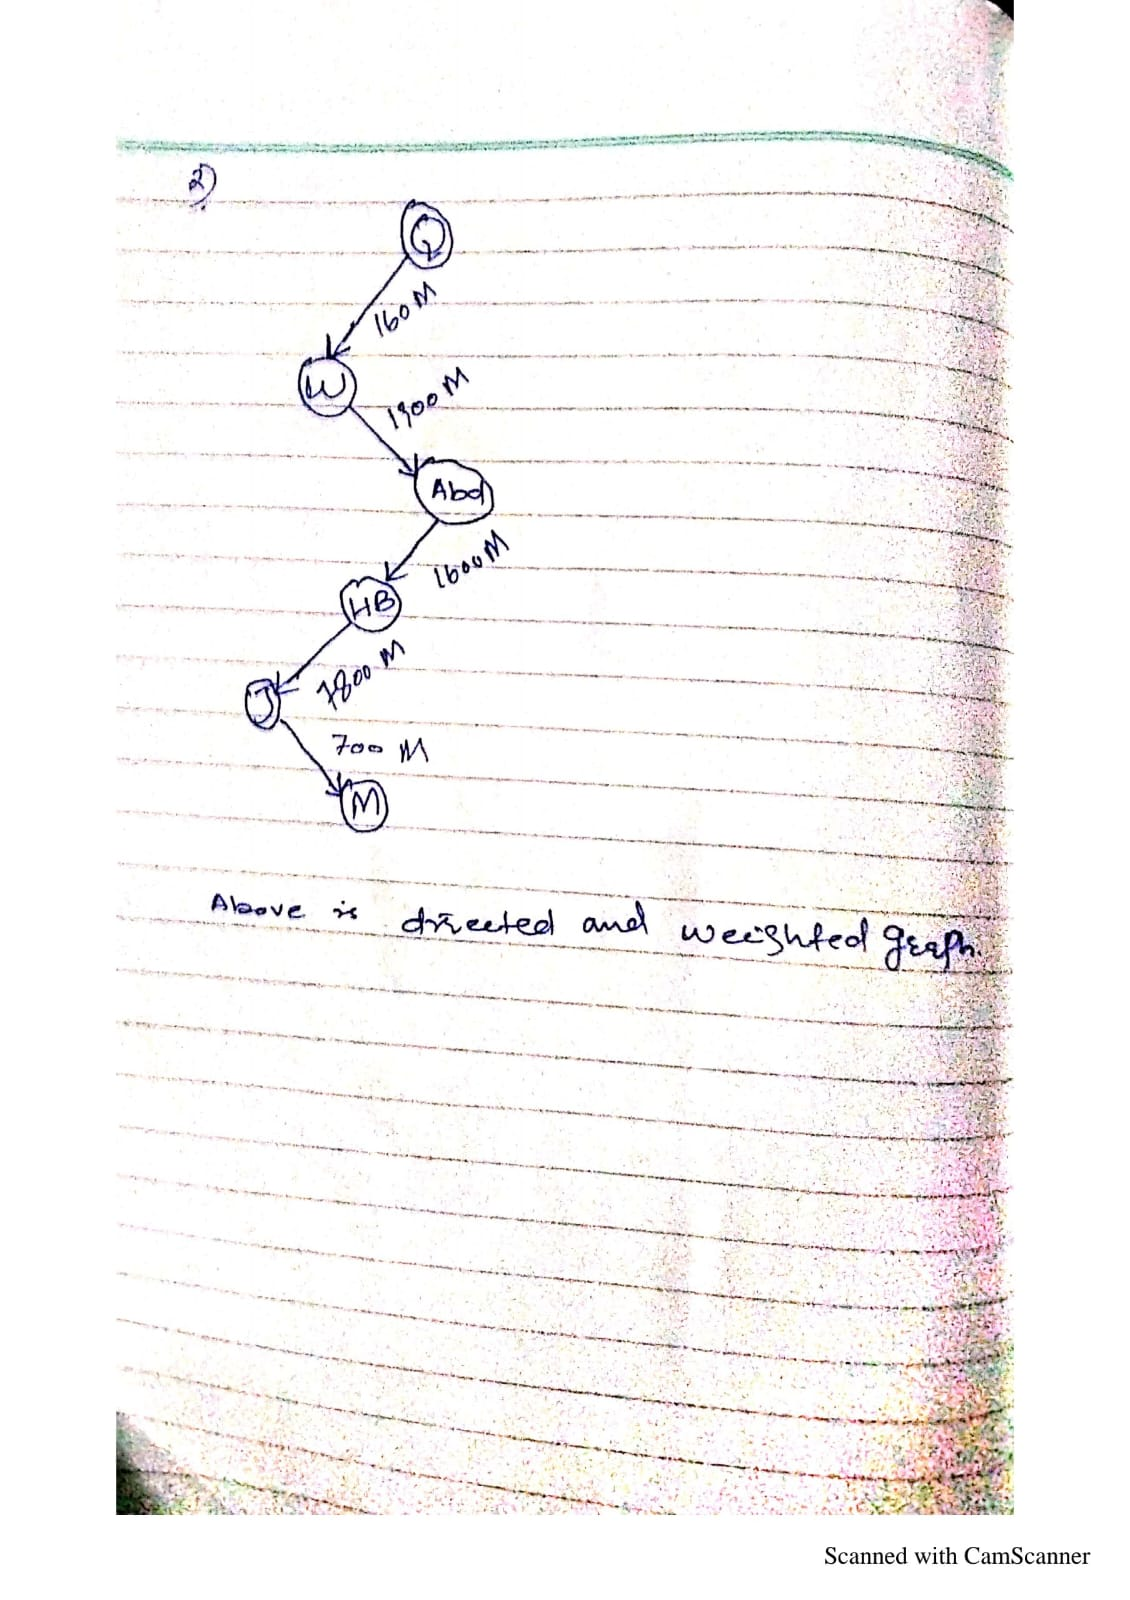 2)
Q
160 M
W
1300 M
Abd
1600 M
HB
7800 M
J
700 M
M
Above is directed and weighted graph.
Scanned with CamScanner